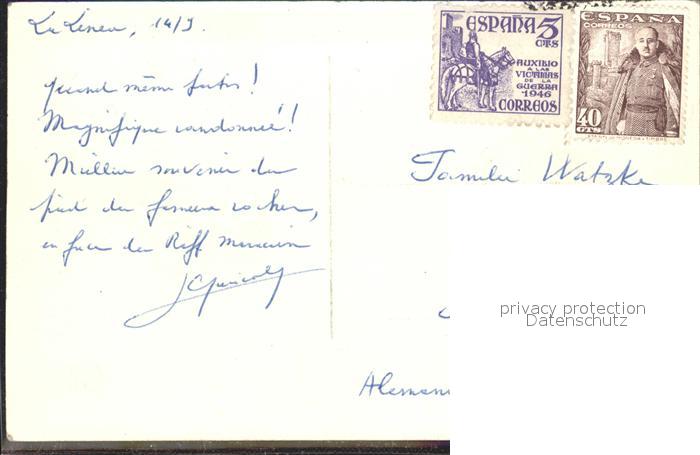 La Linea, 14/9.
quand même faites !
Magnifique randonnée !
Meilleur souvenir du
pied du fameux rocher,
en face du Riff marocain
ESPAÑA 5
CTS
AUXILIO
A LAS
VICTIMAS
DE LA
GUERRA
1946
CORREOS
ESPAÑA
CORREOS
40
CTS
Familie Watzke
Aleman
privacy protection
Datenschutz